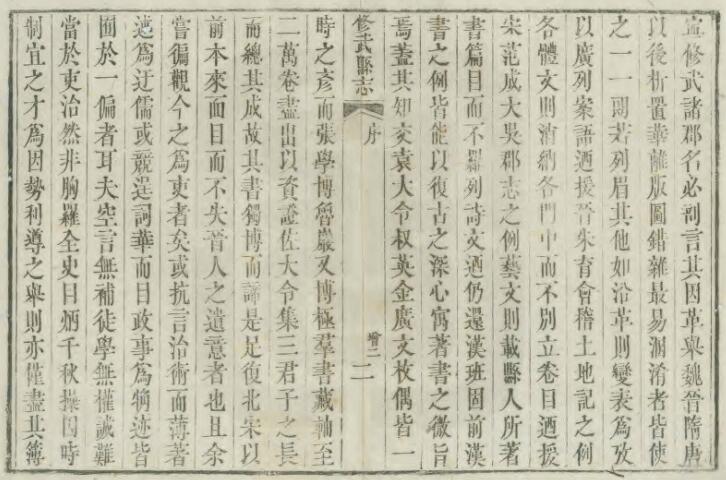 宣修武諸郡名必剖言其因革與魏晉隋唐
以後析置華離版圖錯雜最易溷淆者皆使
之一一朗若列眉其他如沿革則變表爲攷
以廣列案語迺援晉朱育會稽土地記之例
各體文則消納各門中而不別立卷目迺援
宋范成大吳郡志之例藝文則載縣人所著
書篇目而不羅列詩文迺仍還漢班固前漢
書之例皆能以復古之深心寓著書之微旨
焉蓋其知交袁大令叔英金廣文枚偶皆一
修武縣志 序 增二 二
時之彥而張學博魯巖又博極羣書藏軸至
二萬卷盡出以資證佐大令集三君子之長
而總其成故其書獨博而諦是足復北宋以
前本來面目而不失晉人之遺意者也且余
嘗徧觀今之爲吏者矣或抗言治術而薄著
述爲迂儒或競逞詞華而目政事爲猾迹皆
囿於一偏者耳夫空言無補徒學無權誠難
當於吏治然非胸羅全史目炳千秋操因時
制宜之才爲因勢利導之舉則亦僅盡其簿